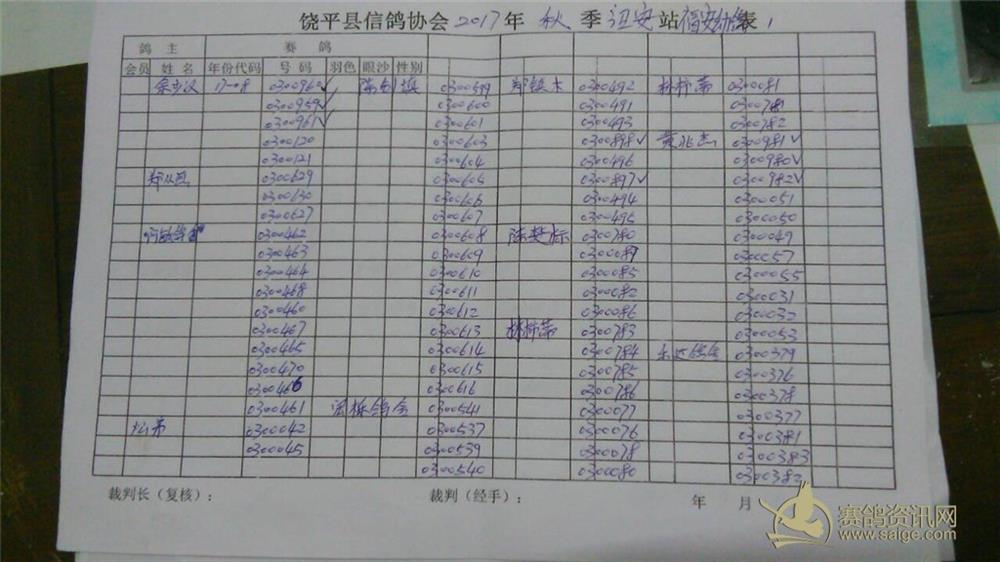 饶平县信鸽协会2017年 秋 季 诏安 站 表 1
鸽 主 赛 鸽
会员 姓 名 年份代码 号 码 羽色 眼沙 性别
17-08 0300960✓ 0300599 0300492 0300081
0300959✓ 0300600 0300491 0300781
0300961✓ 0300601 0300493 0300782
0300120 0300603 0300898✓ 黄兆杰 0300981✓
0300121 0300604 0300496 0300980✓
0300629 0300605 0300897✓ 0300982✓
0300630 0300606 0300494 0300051
0300627 0300607 0300495 0300050
0300462 0300608 陈楚标 0300780 0300049
0300463 0300609 0300089 0300057
0300464 0300610 0300085 0300055
0300468 0300611 0300082 0300031
0300460 0300612 0300086 0300032
0300467 0300613 0300783 0300053
0300465 0300614 0300784 0300379
0300470 0300615 0300785 0300376
0300466 0300616 0300786 0300378
0300461 0300541 0300077 0300377
0300042 0300537 0300076 0300381
0300045 0300539 0300078 0300383
0300540 0300080 0300382
裁判长（复核）： 裁判（经手）： 年 月
赛鸽资讯网
www.saige.com